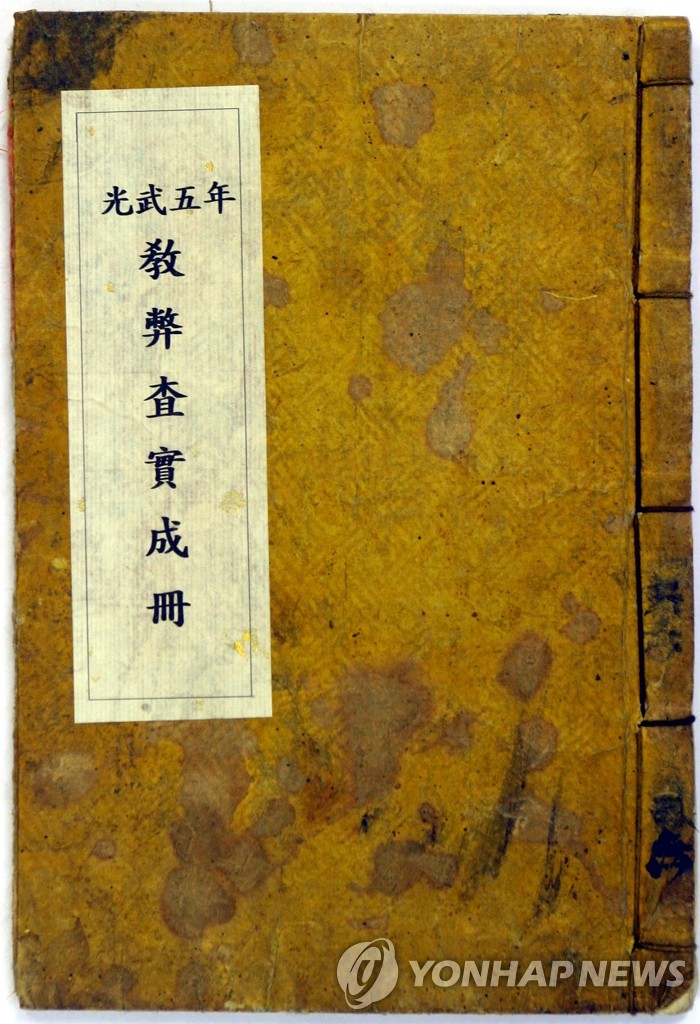 光武五年
教弊査實成冊
YONHAP NEWS